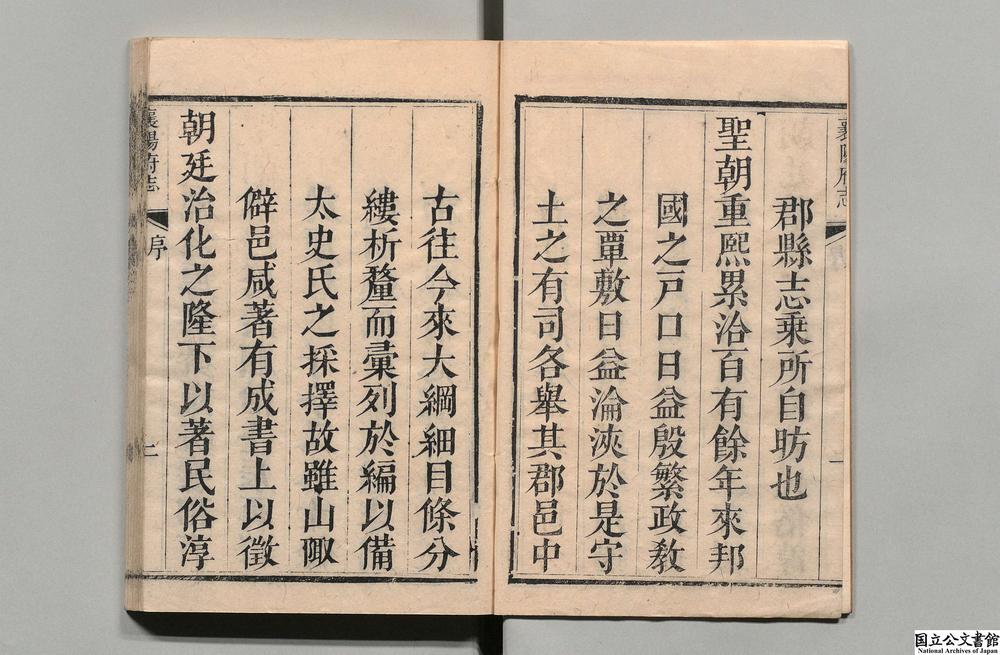 襄陽府志
郡縣志乗所自昉也
聖朝重熙累洽百有餘年來邦
國之戸口日益殷繁政敎
之覃敷日益淪浹於是守
土之有司各舉其郡邑中
古往今來大綱細目條分
縷析釐而彙列於編以備
太史氏之採擇故雖山陬
僻邑咸著有成書上以徵
朝廷治化之隆下以著民俗淳
襄陽府志
序
二
国立公文書館
National Archives of Japan